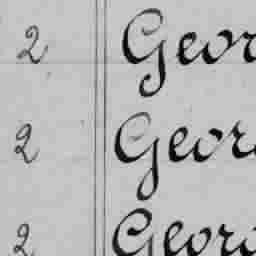 2 Geor
2 Geor
2 Geor